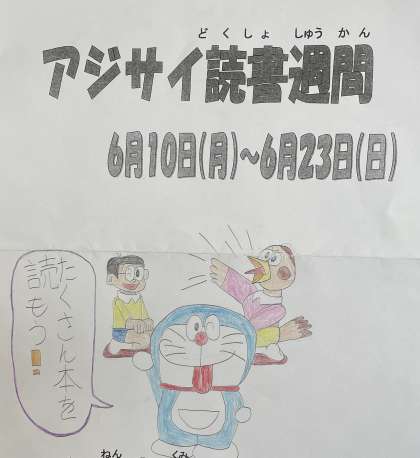 どくしょ しゅうかん
アジサイ読書週間
6月10日(月)~6月23日(日)
たくさん本を
読もう!!
ねん くみ